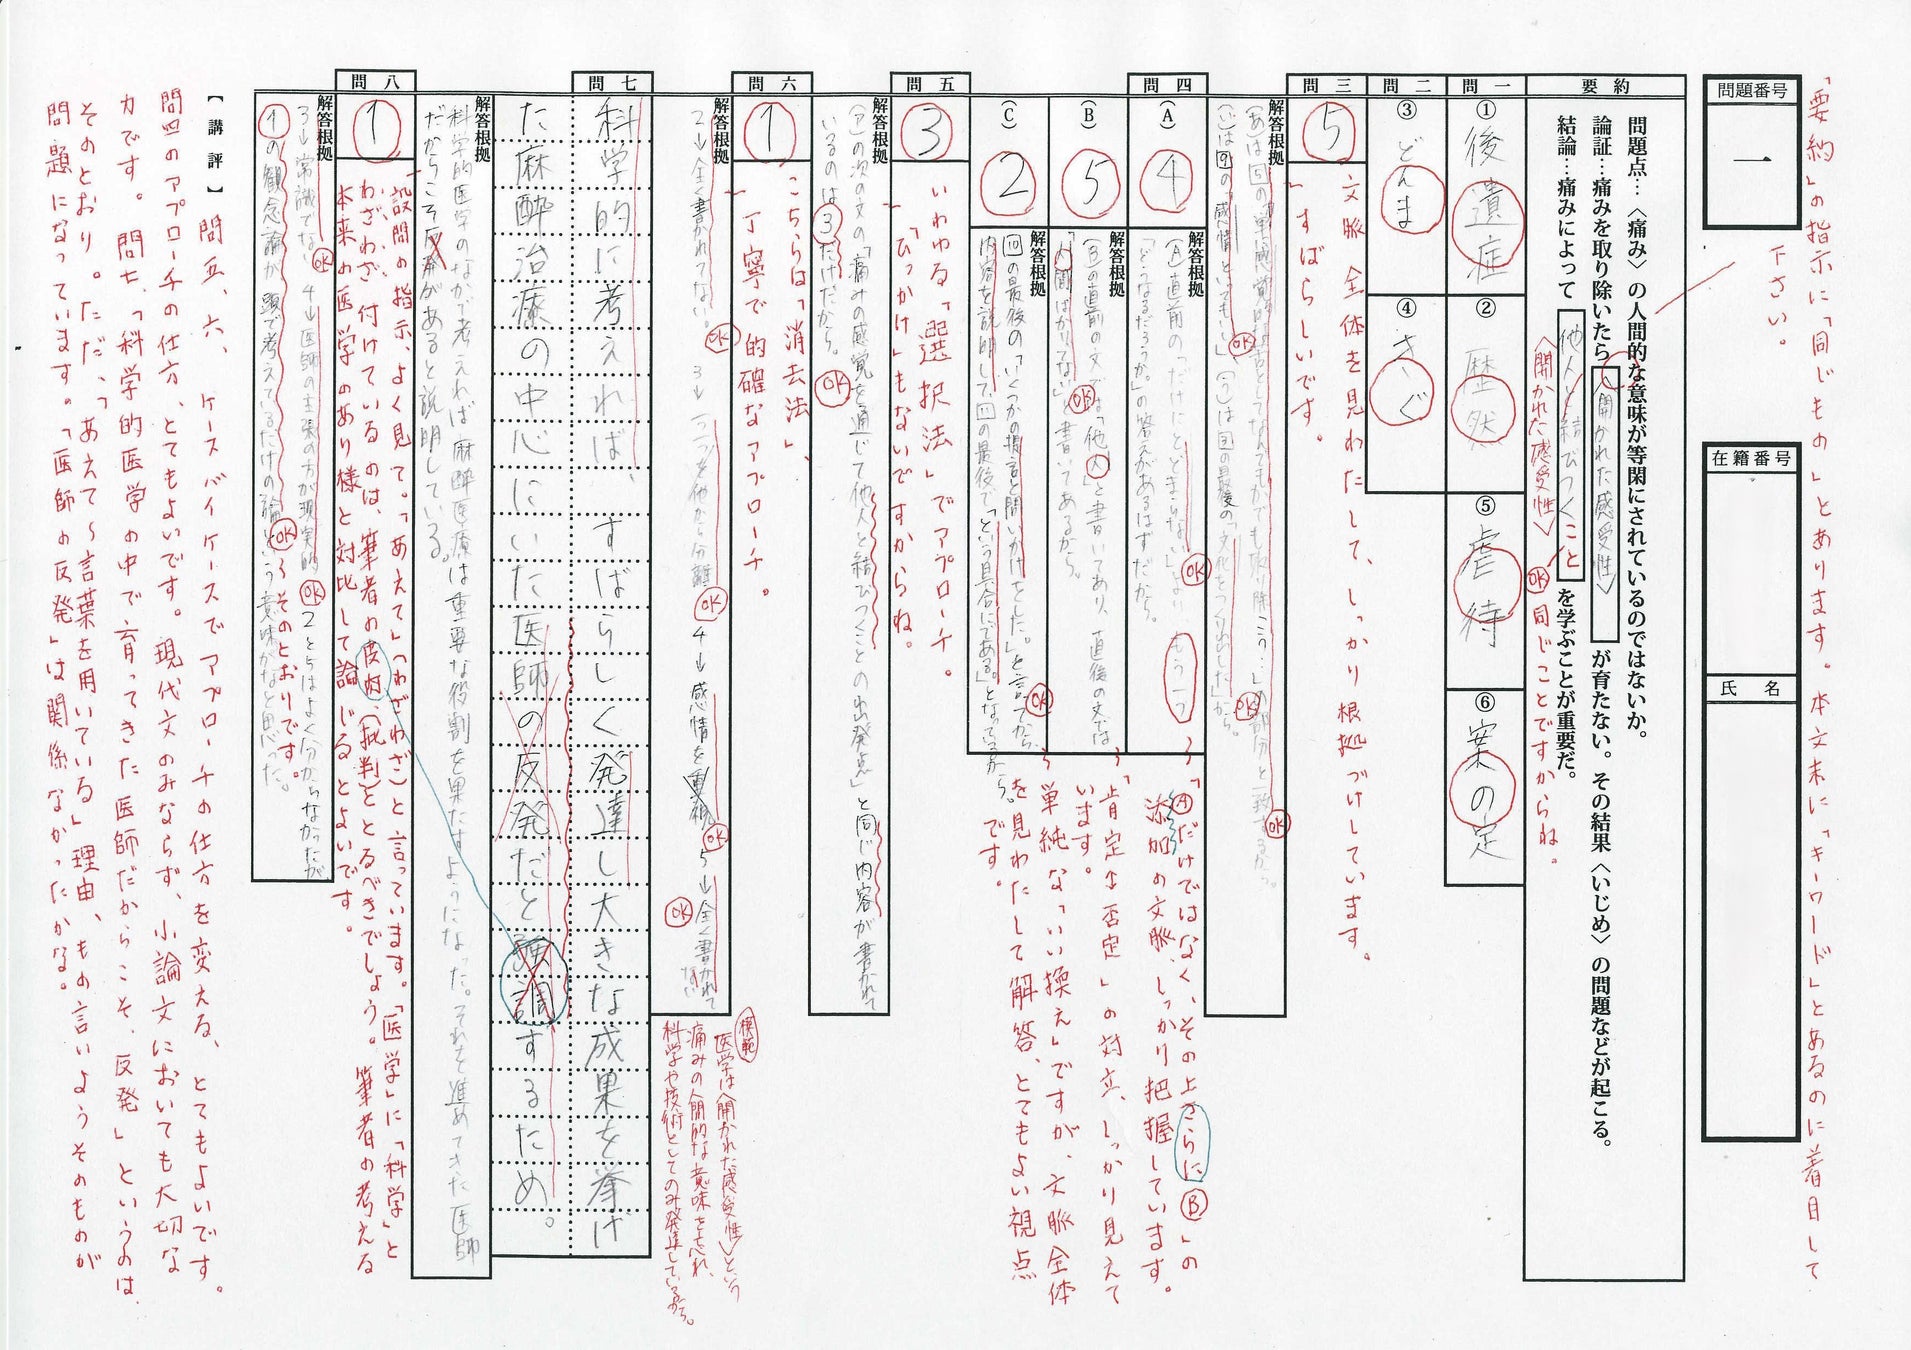 「要約」の指示に「同じもの」とあります。本文末に「キーワード」とあるのに着目して
下さい。
問題番号
一
在籍番号
氏名
要約
問題点…〈痛み〉の人間的な意味が等閑にされているのではないか。
論証…痛みを取り除いたら〈開かれた感受性〉が育たない。その結果〈いじめ〉の問題などが起こる。
結論…痛みによって他人と結びつくことを学ぶことが重要だ。
〈開かれた感受性〉
OK 同じことですからね。
問一
① 後遺症
② 歴然
⑤ 虐待
⑥ 案の定
問二
③ どんま
④ さぐ
問三
5
文脈全体を見わたして、しっかり根拠づけしています。
すばらしいです。
解答根拠
OK
(う)は
OK
OK
問四
(A)
4
解答根拠
(A)直前の「だけにとどまらない」より もう一つ
「どうなるだろうか。」の答えがあるはずだから。
OK
「Aだけではなく、その上さらにB」の
添加の文脈、しっかり把握しています。
(B)
5
解答根拠
(B)の直前の文では「他人」と書いてあり、直後の文では
「人間ばかりでない」と書いてあるから。
OK
「肯定⇔否定」の対立、しっかり見えて
います。
(C)
2
解答根拠
の最後の「いくつかの提言と問いかけをした。」と言ってから
内容を説明して、の最後で「という具合にである。」となっているから。
OK
単純な「いい換え」ですが、文脈全体
を見わたして解答、とてもよい視点
です。
問五
3
いわゆる「選択法」でアプローチ。
「ひっかけ」もないですからね。
解答根拠
(ア)の次の文の「痛みの感覚を通じて他人と結びつくことの再発見」と同じ内容が書かれて
いるのは3だけだから。
OK
問六
1
こちらは「消去法」、
丁寧で的確なアプローチ。
解答根拠
2→全く書かれてない。OK 3→ OK 4→感情を重視 OK 5→全く書かれて
ない OK
模範
医学は〈開かれた感受性〉という
痛みの人間的な意味を忘れ、
科学や技術としてのみ発達しているから。
問七
科学的に考えれば、すばらしく発達し大きな成果を挙げ
た麻酔治療の中心にいた医師の反発だと強調するため。
解答根拠
科学的医学のなかで考えれば麻酔医療は重要な役割を果たすようになった。それを進めてきた医師
だからこそ反発があると説明している。
設問の指示、よく見て。「あえて」(わざわざ)と言っています。「医学」に「科学」と
わざわざ付けているのは、筆者の皮肉、(批判)ととるべきでしょう。筆者の考える
本来の医学のあり様と対比して論じるとよいです。
問八
1
解答根拠
3→常識でない OK 4→医師の主張の方が現実的 OK 2とはよく分からなかったが、
1の観念論が、頭で考えているだけの論 OK という意味かなと思った。
そのとおりです。
【講評】 問五、六、ケースバイケースでアプローチの仕方を変える、とてもよいです。
問四のアプローチの仕方、とてもよいです。現代文のみならず、小論文においても大切な
力です。問七、「科学的医学の中で育ってきた医師だからこそ、反発」というのは、
そのとおり。ただ、「あえて〜言葉を用いている」理由、もの言いようそのものが
問題になっています。「医師の反発」は関係なかったかな。